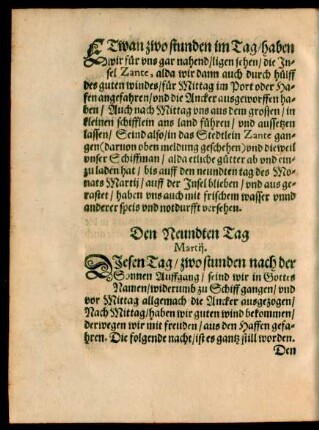 ETwan zwo stunden im Tag/haben
wir für vns gar nahend/ligen sehen/ die In-
sel Zante, alda wir dann auch durch hülff
des guten windes/ für Mittag im Port oder Ha-
fen angefahren/ vnd die Ancker ausgeworffen ha-
ben/ Auch nach Mittag vns aus dem grossen/ in
kleinen schifflein ans land führen/ vnd aussetzen
lassen/ Seind also/ in das Stedtlein Zante gan-
gen (daruon oben meldung geschehen) vnd dieweil
vnser Schiffman/ alda etliche gütter ab vnd ein-
zu laden hat/ bis auff den neundten tag des Mo-
nats Martij/ auff der Insel blieben/ vnd aus ge-
rastet/ haben vns auch mit frischem wasser vnnd
anderer speis vnd notdurfft versehen.
Den Neundten Tag
Martij.
DIesen Tag/ zwo stunden nach der
Sonnen Auffgang/ seind wir in Gottes
Namen/ widerumb zu Schiff gangen/ vnd
vor Mittag allgemach die Ancker ausgezogen/
Nach Mittag/ haben wir guten wind bekommen/
derwegen wir mit freuden/ aus den Haffen gefa-
hren. Die folgende nacht/ ist es gantz still worden.
Den